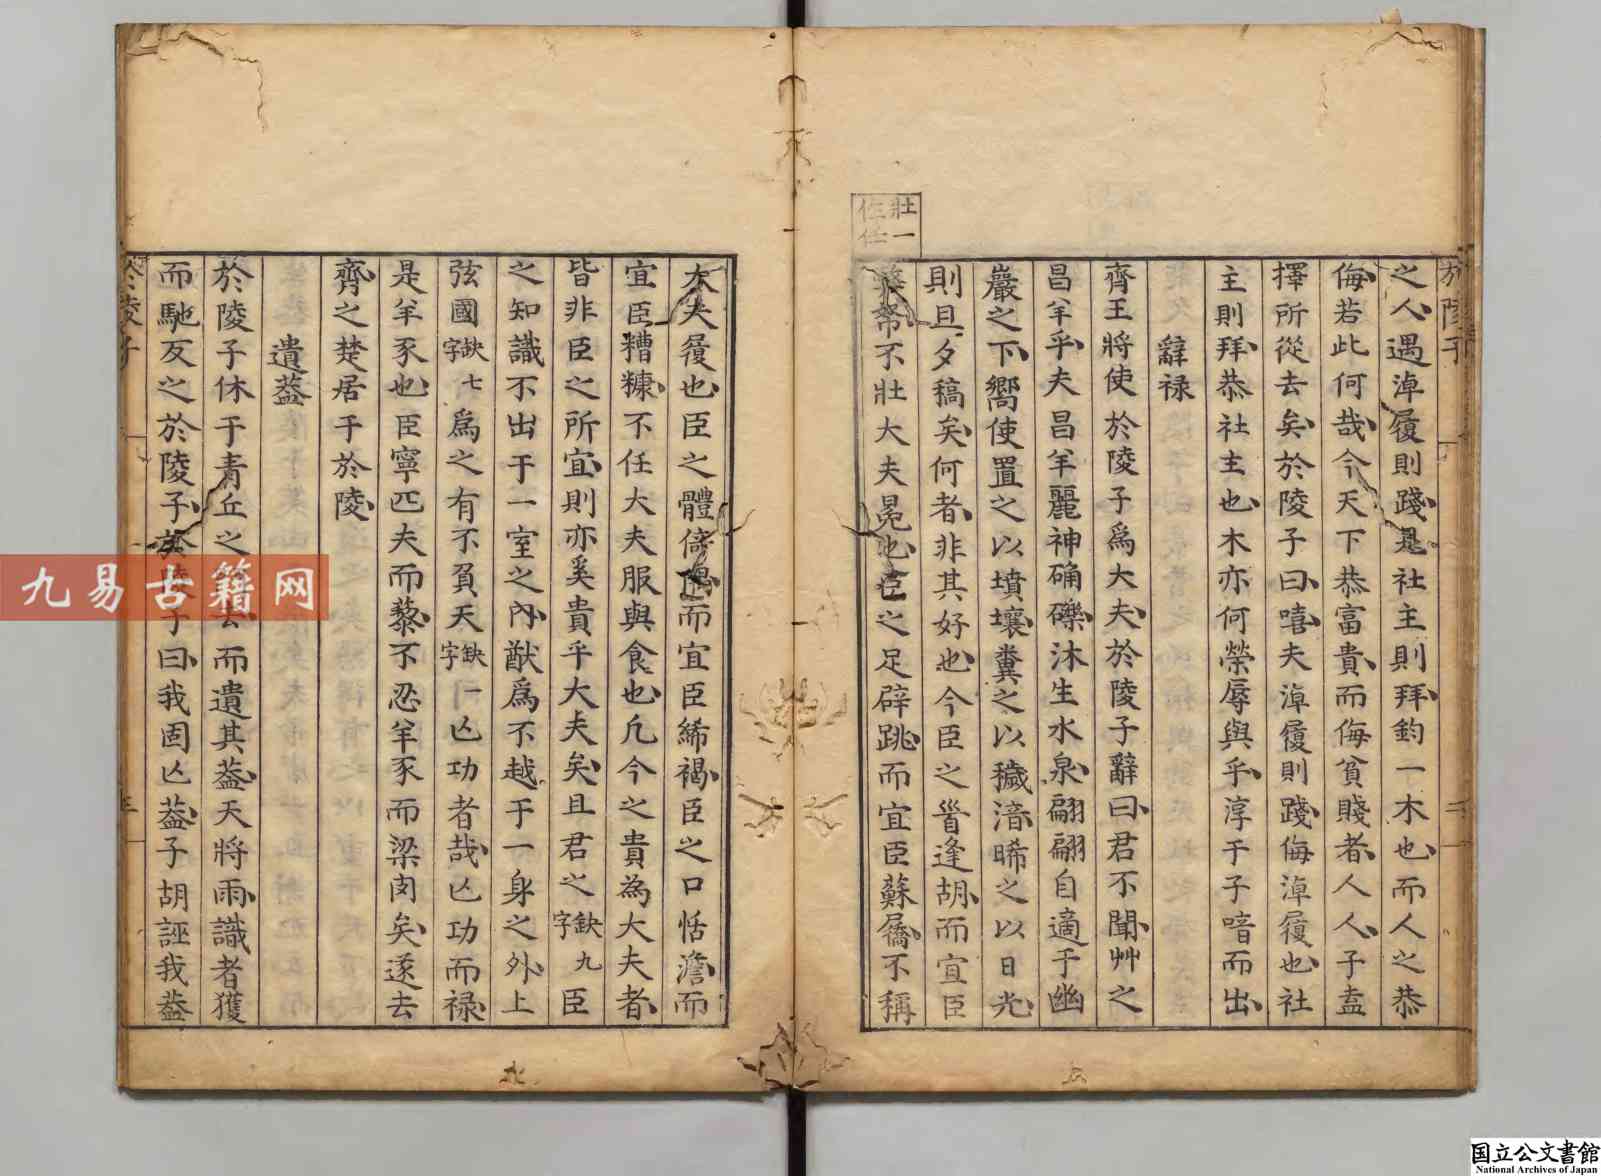 於陵子
二
之人遇淖履則踐是社主則拜鈞一木也而人之恭
侮若此何哉今天下恭富貴而侮貧賤者人人子盍
擇所從去矣於陵子曰嘻夫淖履則踐侮淖履也社
主則拜恭社主也木亦何榮辱與乎淳于子喑而出
辭禄
齊王將使於陵子爲大夫於陵子辭曰君不聞艸之
昌羊乎夫昌羊麗神确礫沐生水泉翩翩自適于幽
巖之下嚮使置之以墳壤糞之以穢涪晞之以日光
則旦夕稿矣何者非其好也今臣之眥逢胡而宜臣
帑不壯大夫冕也臣之足辟跳而宜臣蘇屩不稱
壯一
佐任
大夫履也臣之體倚而宜臣絺褐臣之口恬澹而
宜臣糟糠不任大夫服與食也凢今之貴為大夫者
皆非臣之所宜則亦奚貴乎大夫矣且君之缺九字臣
之知識不出于一室之內猷爲不越于一身之外上
弦國缺七字爲之有不負天缺一字亾功者哉亾功而禄
是羊豕也臣寧匹夫而藜不忍羊豕而梁肉矣遂去
齊之楚居于於陵
遺葢
於陵子休于青丘之去而遺其葢天將雨識者獲
而馳反之於陵子於陵子曰我固亾葢子胡誣我葢
於陵子
三
九易古籍网
国立公文書館
National Archives of Japan